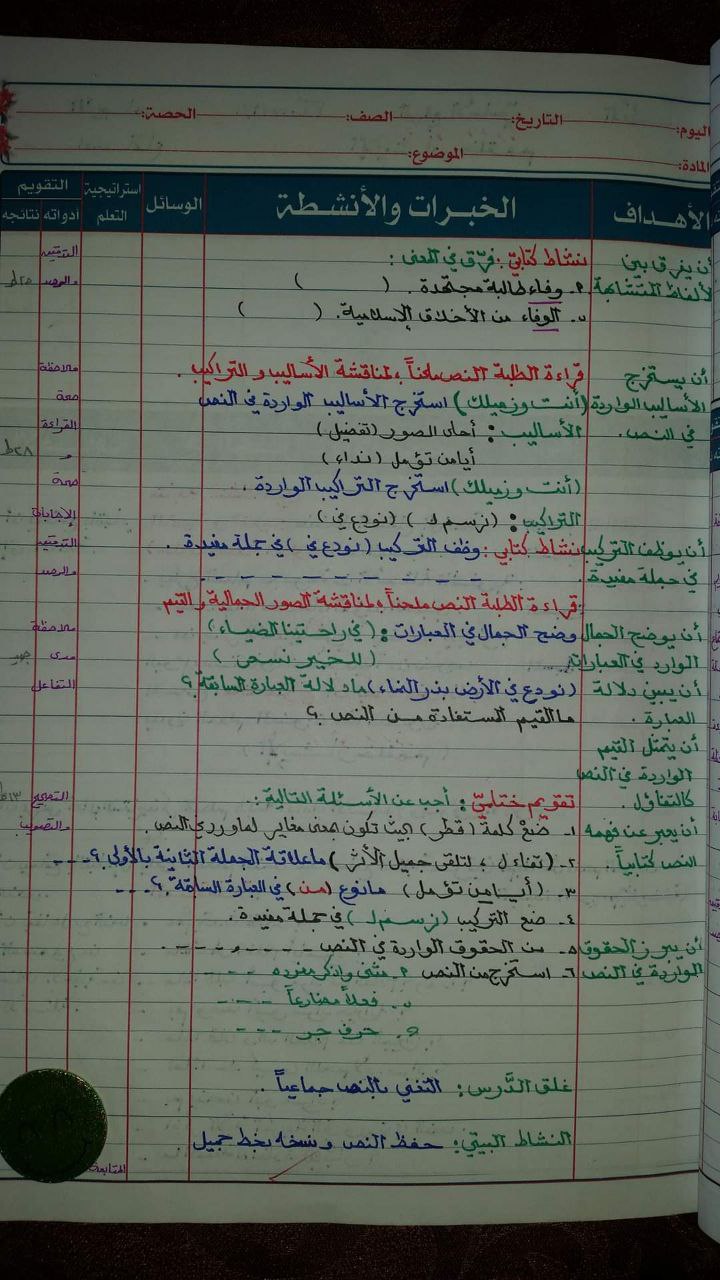 اليوم: التاريخ: الصف: الحصة:
المادة: الموضوع:
الأهداف الخبرات والأنشطة الوسائل استراتيجية التعلم التقويم
أدواته نتائجه
أن يفرق بين نشاط كتابيّ: فرّق في المعنى:
الألفاظ المتشابهة ٩. وفاء طالبة مجتهدة. ( ) والرصد
ب. الوفاء من الأخلاق الإسلامية. ( )
أن يستخرج قراءة الطلبة النص ملحناً، لمناقشة الأساليب والتراكيب. ملاحظة
الأساليب الواردة (أنت وزميلك) استخرج الأساليب الواردة في النص صحة
في النص. الأساليب: أحلى الصور (تفضيل) القراءة
أيا من تؤمل (نداء) و ٢٨ط
(أنت وزميلك) استخرج التراكيب الواردة. صحة
التراكيب: (نرسم لـ) (نودع في) الإجابات
أن يوظف التركيب نشاط كتابي: وظف التركيب (نودع في) في جملة مفيدة.
في جملة مفيدة. - - - - - - - - والرصد
قراءة الطلبة النص ملحناً، لمناقشة الصور الجمالية والقيم
أن يوضح الجمال وضح الجمال في العبارات: (في راحتينا الضياء) ملاحظة
الوارد في العبارات. (للخير نسعى) مدى
أن يبين دلالة (نودع في الأرض بذر النماء) ما دلالة العبارة السابقة؟ التفاعل
العبارة. ما القيم المستفادة من النص؟
أن يتمثل القيم
الواردة في النص
كالتفاؤل. تقويم ختاميّ: أجب عن الأسئلة التالية: التصحيح
أن يعبر عن فهمه ١- ضَعْ كلمة (قطر) بحيث تكون بمعنى مغاير لما ورد في النص. والتصويب
النص كتابياً. ٢- (تفاءل، لتلقى جميل الأثر) ما علاقة الجملة الثانية بالأولى؟ - - -
٣- (أيا من تؤمل) ما نوع (من) في العبارة السابقة؟ - - -
٤- ضع التركيب (نرسم لـ) في جملة مفيدة.
أن يبرز الحقوق ٥- من الحقوق الواردة في النص - - - - و - - - -
الواردة في النص ٦- استخرج من النص ٩. مثنى واذكر مفرده - - -
ب. فعلاً مضارعاً - - - -
ج. حرف جر - - -
غلق الدَّرس: التغني بالنص جماعياً.
النشاط البيتي: حفظ النص ونسخه بخط جميل
المتابعة